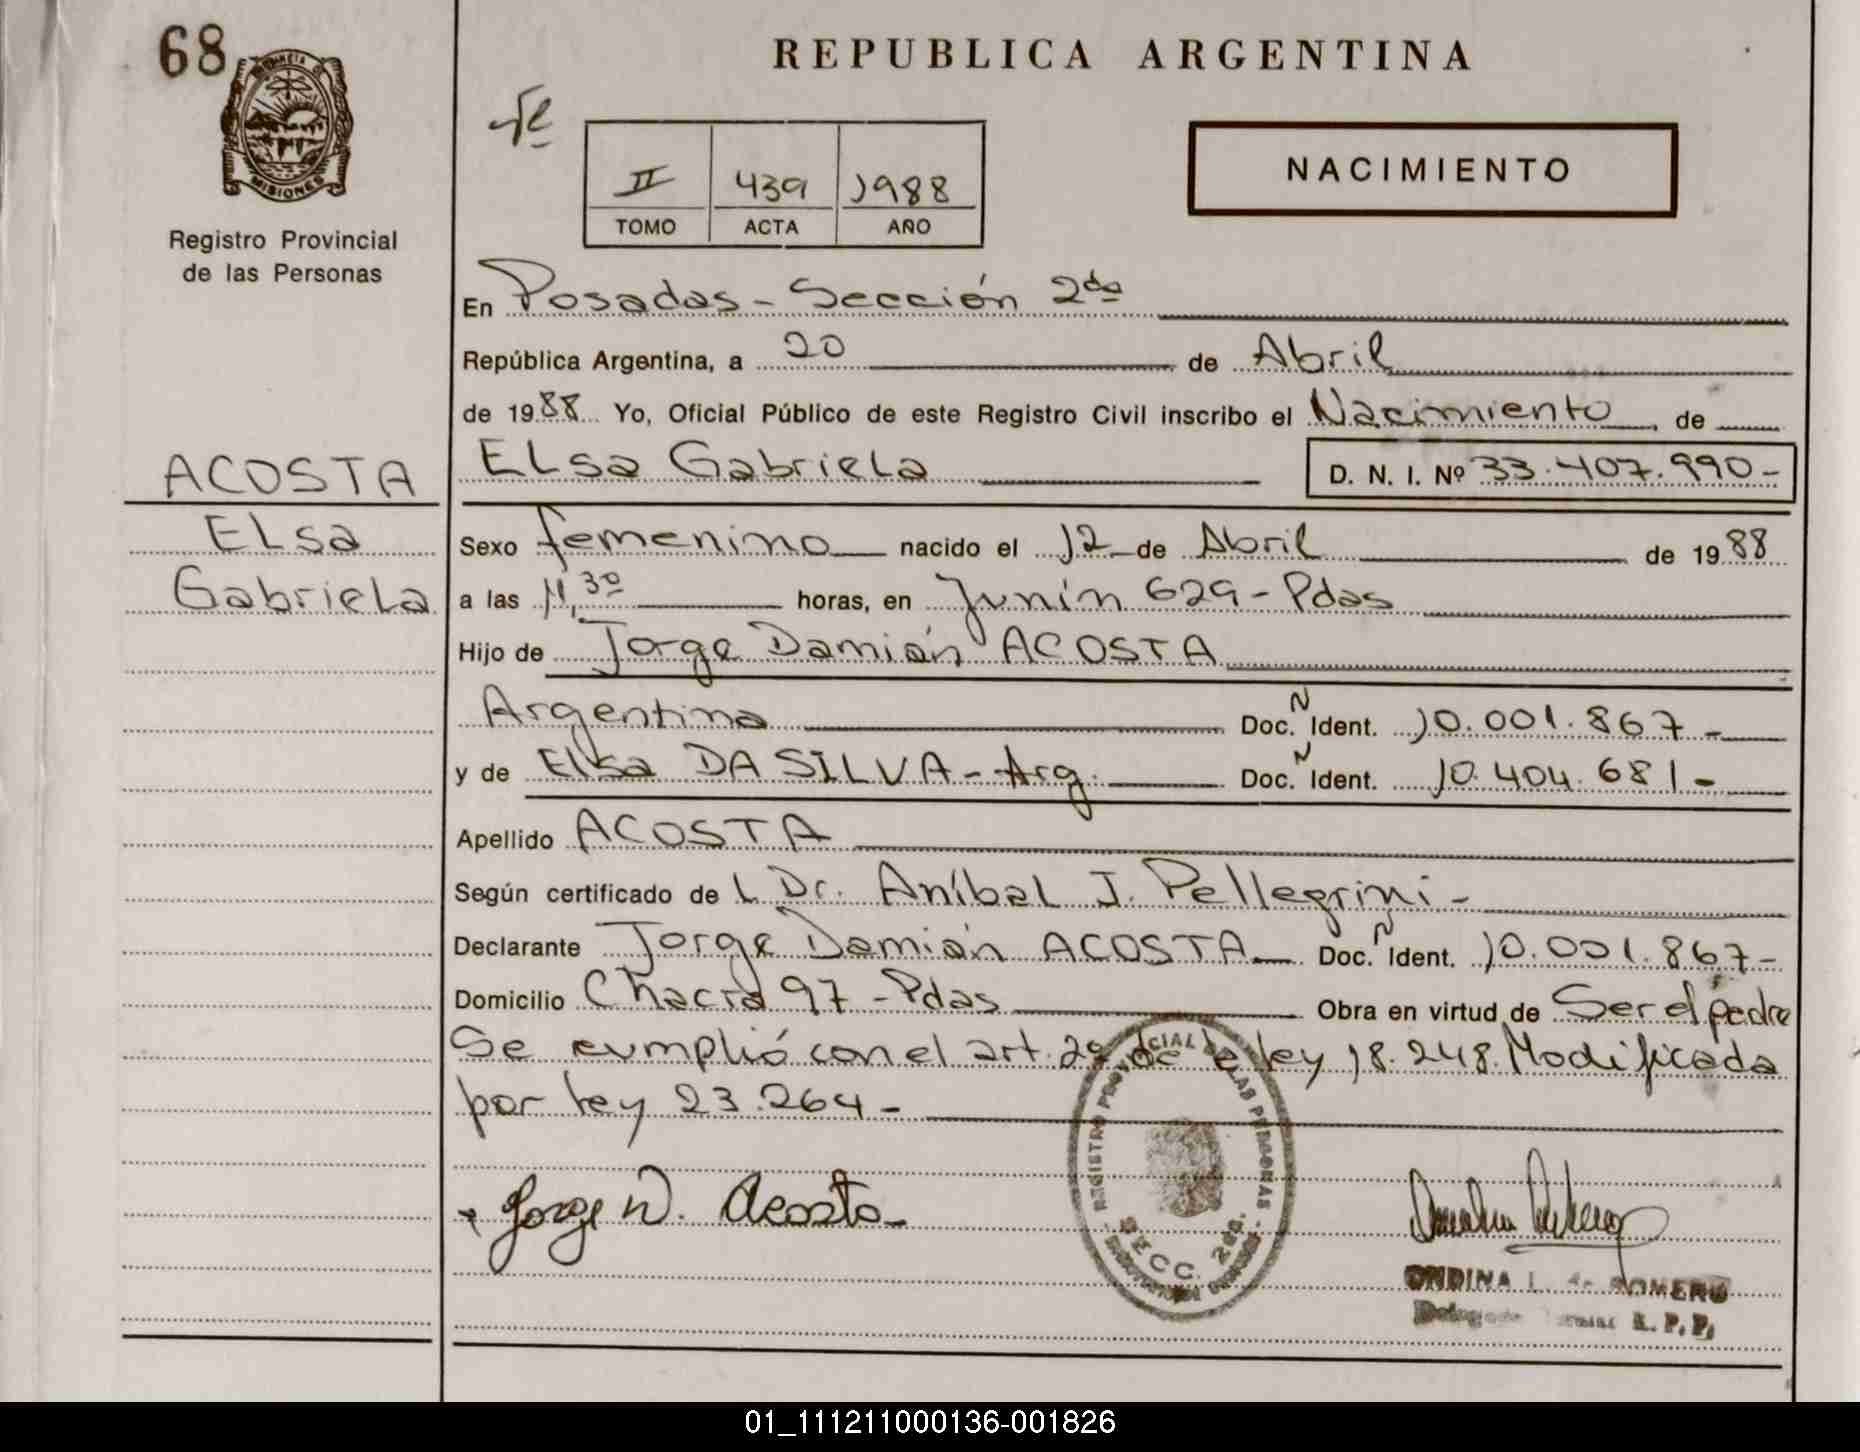 68
REPUBLICA ARGENTINA
MISIONES
Registro Provincial
de las Personas
II 439 1988
TOMO ACTA AÑO
NACIMIENTO
En Posadas - Sección 2da
República Argentina, a 20 de Abril
de 1988 Yo, Oficial Público de este Registro Civil inscribo el Nacimiento de
ACOSTA
Elsa Gabriela D. N. I. Nº 33.407.990-
Elsa
Gabriela
Sexo femenino nacido el 12 de Abril de 1988
a las 11,30 horas, en Junín 629 - Pdas
Hijo de Jorge Damián ACOSTA
Argentina Doc. N Ident. 10.001.867-
y de Elsa DA SILVA - Arg. Doc. N Ident. 10.404.681-
Apellido ACOSTA
Según certificado de L Dr. Aníbal J. Pellegrini -
Declarante Jorge Damián ACOSTA Doc. N Ident. 10.001.867-
Domicilio Chacra 97 - Pdas Obra en virtud de Ser el padre
Se cumplió con el art. 2º de la ley 18.248. Modificada
por ley 23.264 -
REGISTRO PROVINCIAL DE LAS PERSONAS
SECC. 2da.
Jorge D. Acosta
ONDINA L. de ROMERO
R. P. P.
01_111211000136-001826